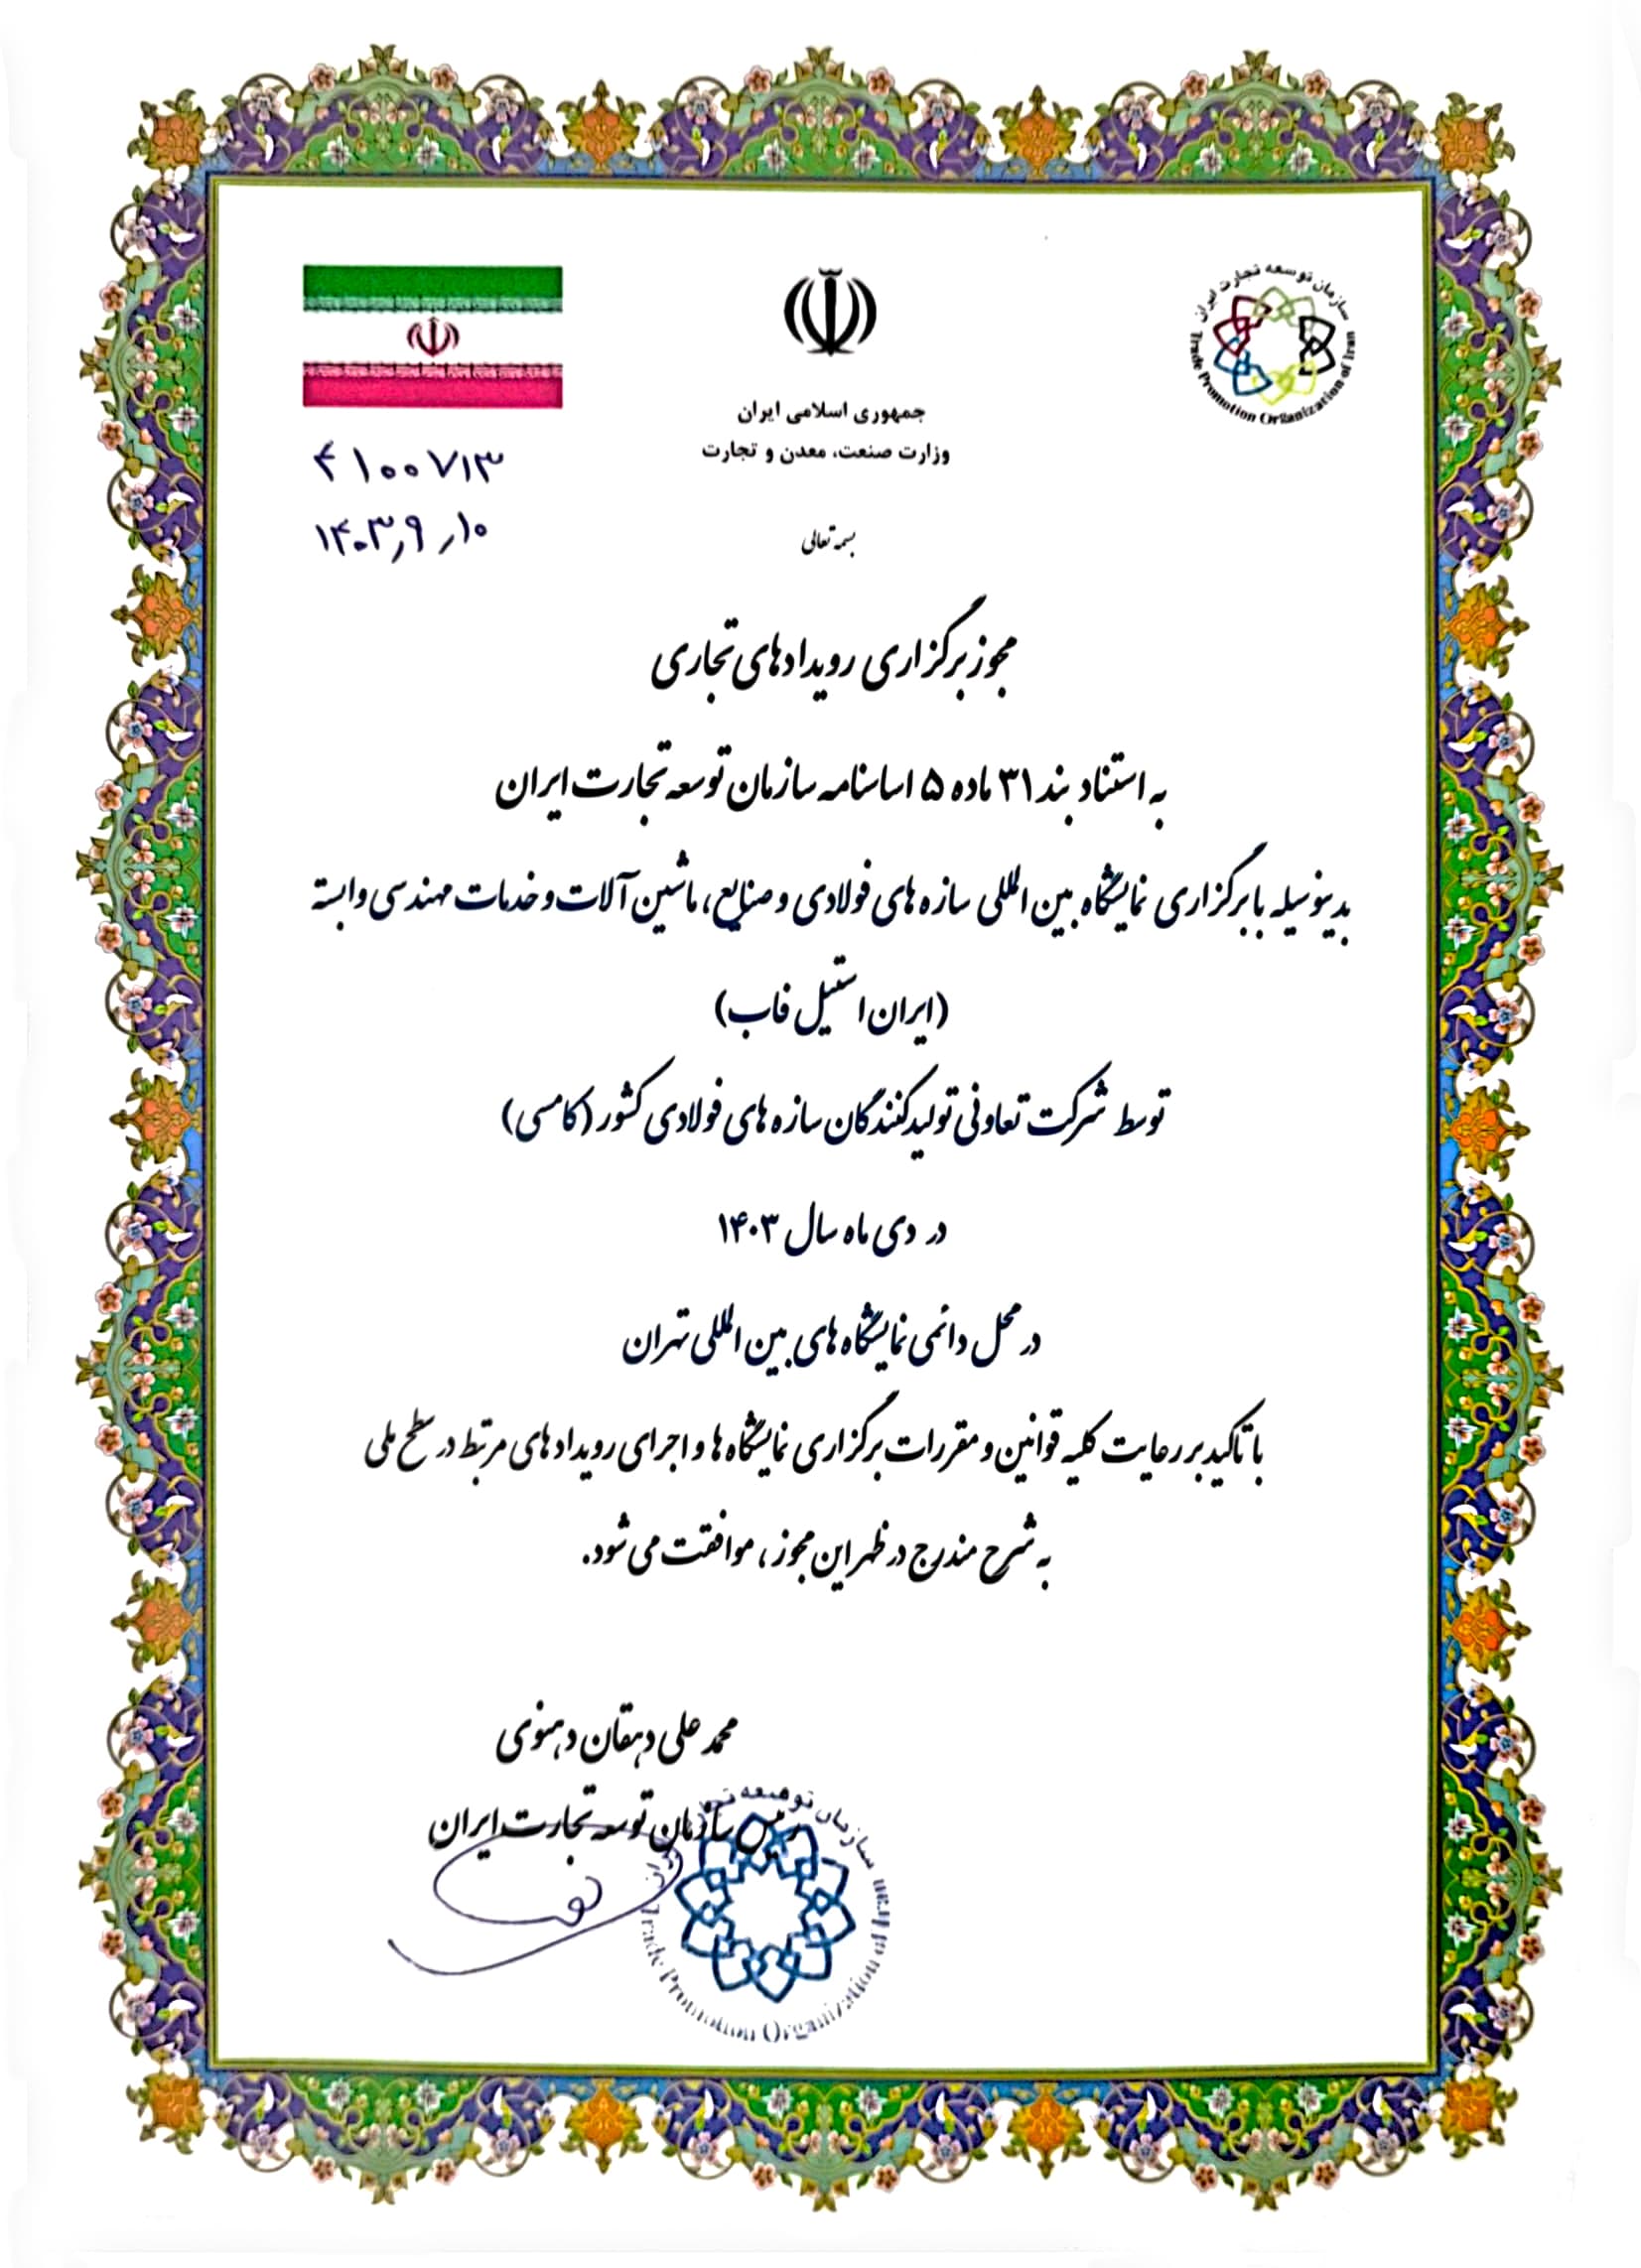 سازمان توسعه تجارت ایران
Trade Promotion Organization of Iran
جمهوری اسلامی ایران
وزارت صنعت، معدن و تجارت
۴۱۰۰۷۱۳
۱۴۰۳٫۹٫۱۰
بسمه تعالی
مجوز برگزاری رویدادهای تجاری
به استناد بند ۳۱ ماده ۵ اساسنامه سازمان توسعه تجارت ایران
بدینوسیله با برگزاری نمایشگاه بین المللی سازه های فولادی و صنایع، ماشین آلات و خدمات مهندسی وابسته
(ایران استیل فاب)
توسط شرکت تعاونی تولیدکنندگان سازه های فولادی کشور (کامسی)
در دی ماه سال ۱۴۰۳
در محل دائمی نمایشگاه های بین المللی تهران
با تاکید بر رعایت کلیه قوانین و مقررات برگزاری نمایشگاه ها و اجرای رویدادهای مرتبط در سطح ملی
به شرح مندرج در ظهر این مجوز، موافقت می شود.
محمد علی دهقان دهنوی
رییس سازمان توسعه تجارت ایران
سازمان توسعه تجارت ایران
Trade Promotion Organization of Iran